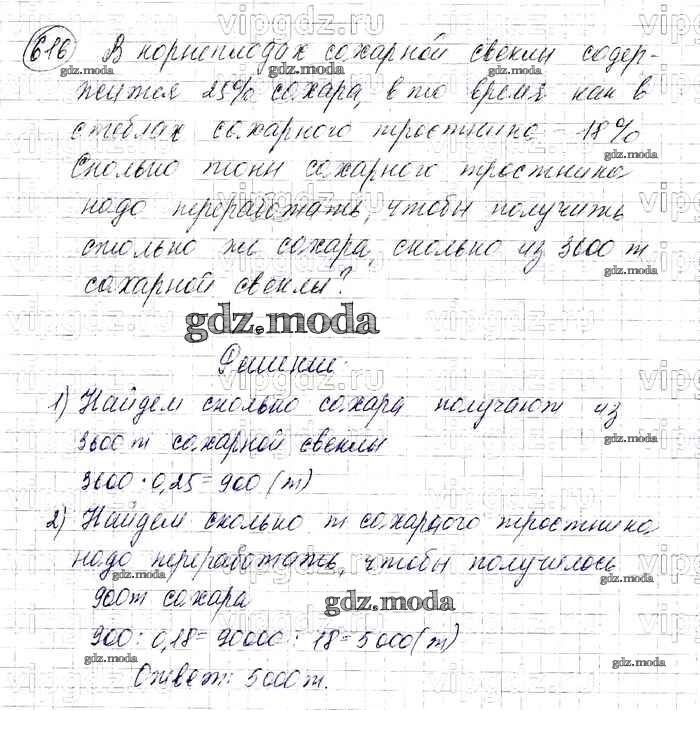 616 В корнеплодах сахарной свеклы содер-
жится 25% сахара, в то время как в
стеблах сахарного тростника - 18%
Сколько тонн сахарного тростника
надо переработать, чтобы получить
столько же сахара, сколько из 3600 т
сахарной свеклы?
gdz.moda
Решение:
1) Найдем сколько сахара получают из
3600 т сахарной свеклы
3600 · 0,25 = 900 (т)
2) Найдем сколько т сахарного тростника
надо переработать, чтобы получилось
900т сахара
gdz.moda
900 : 0,18 = 90000 : 18 = 5000 (т)
Ответ: 5000т.